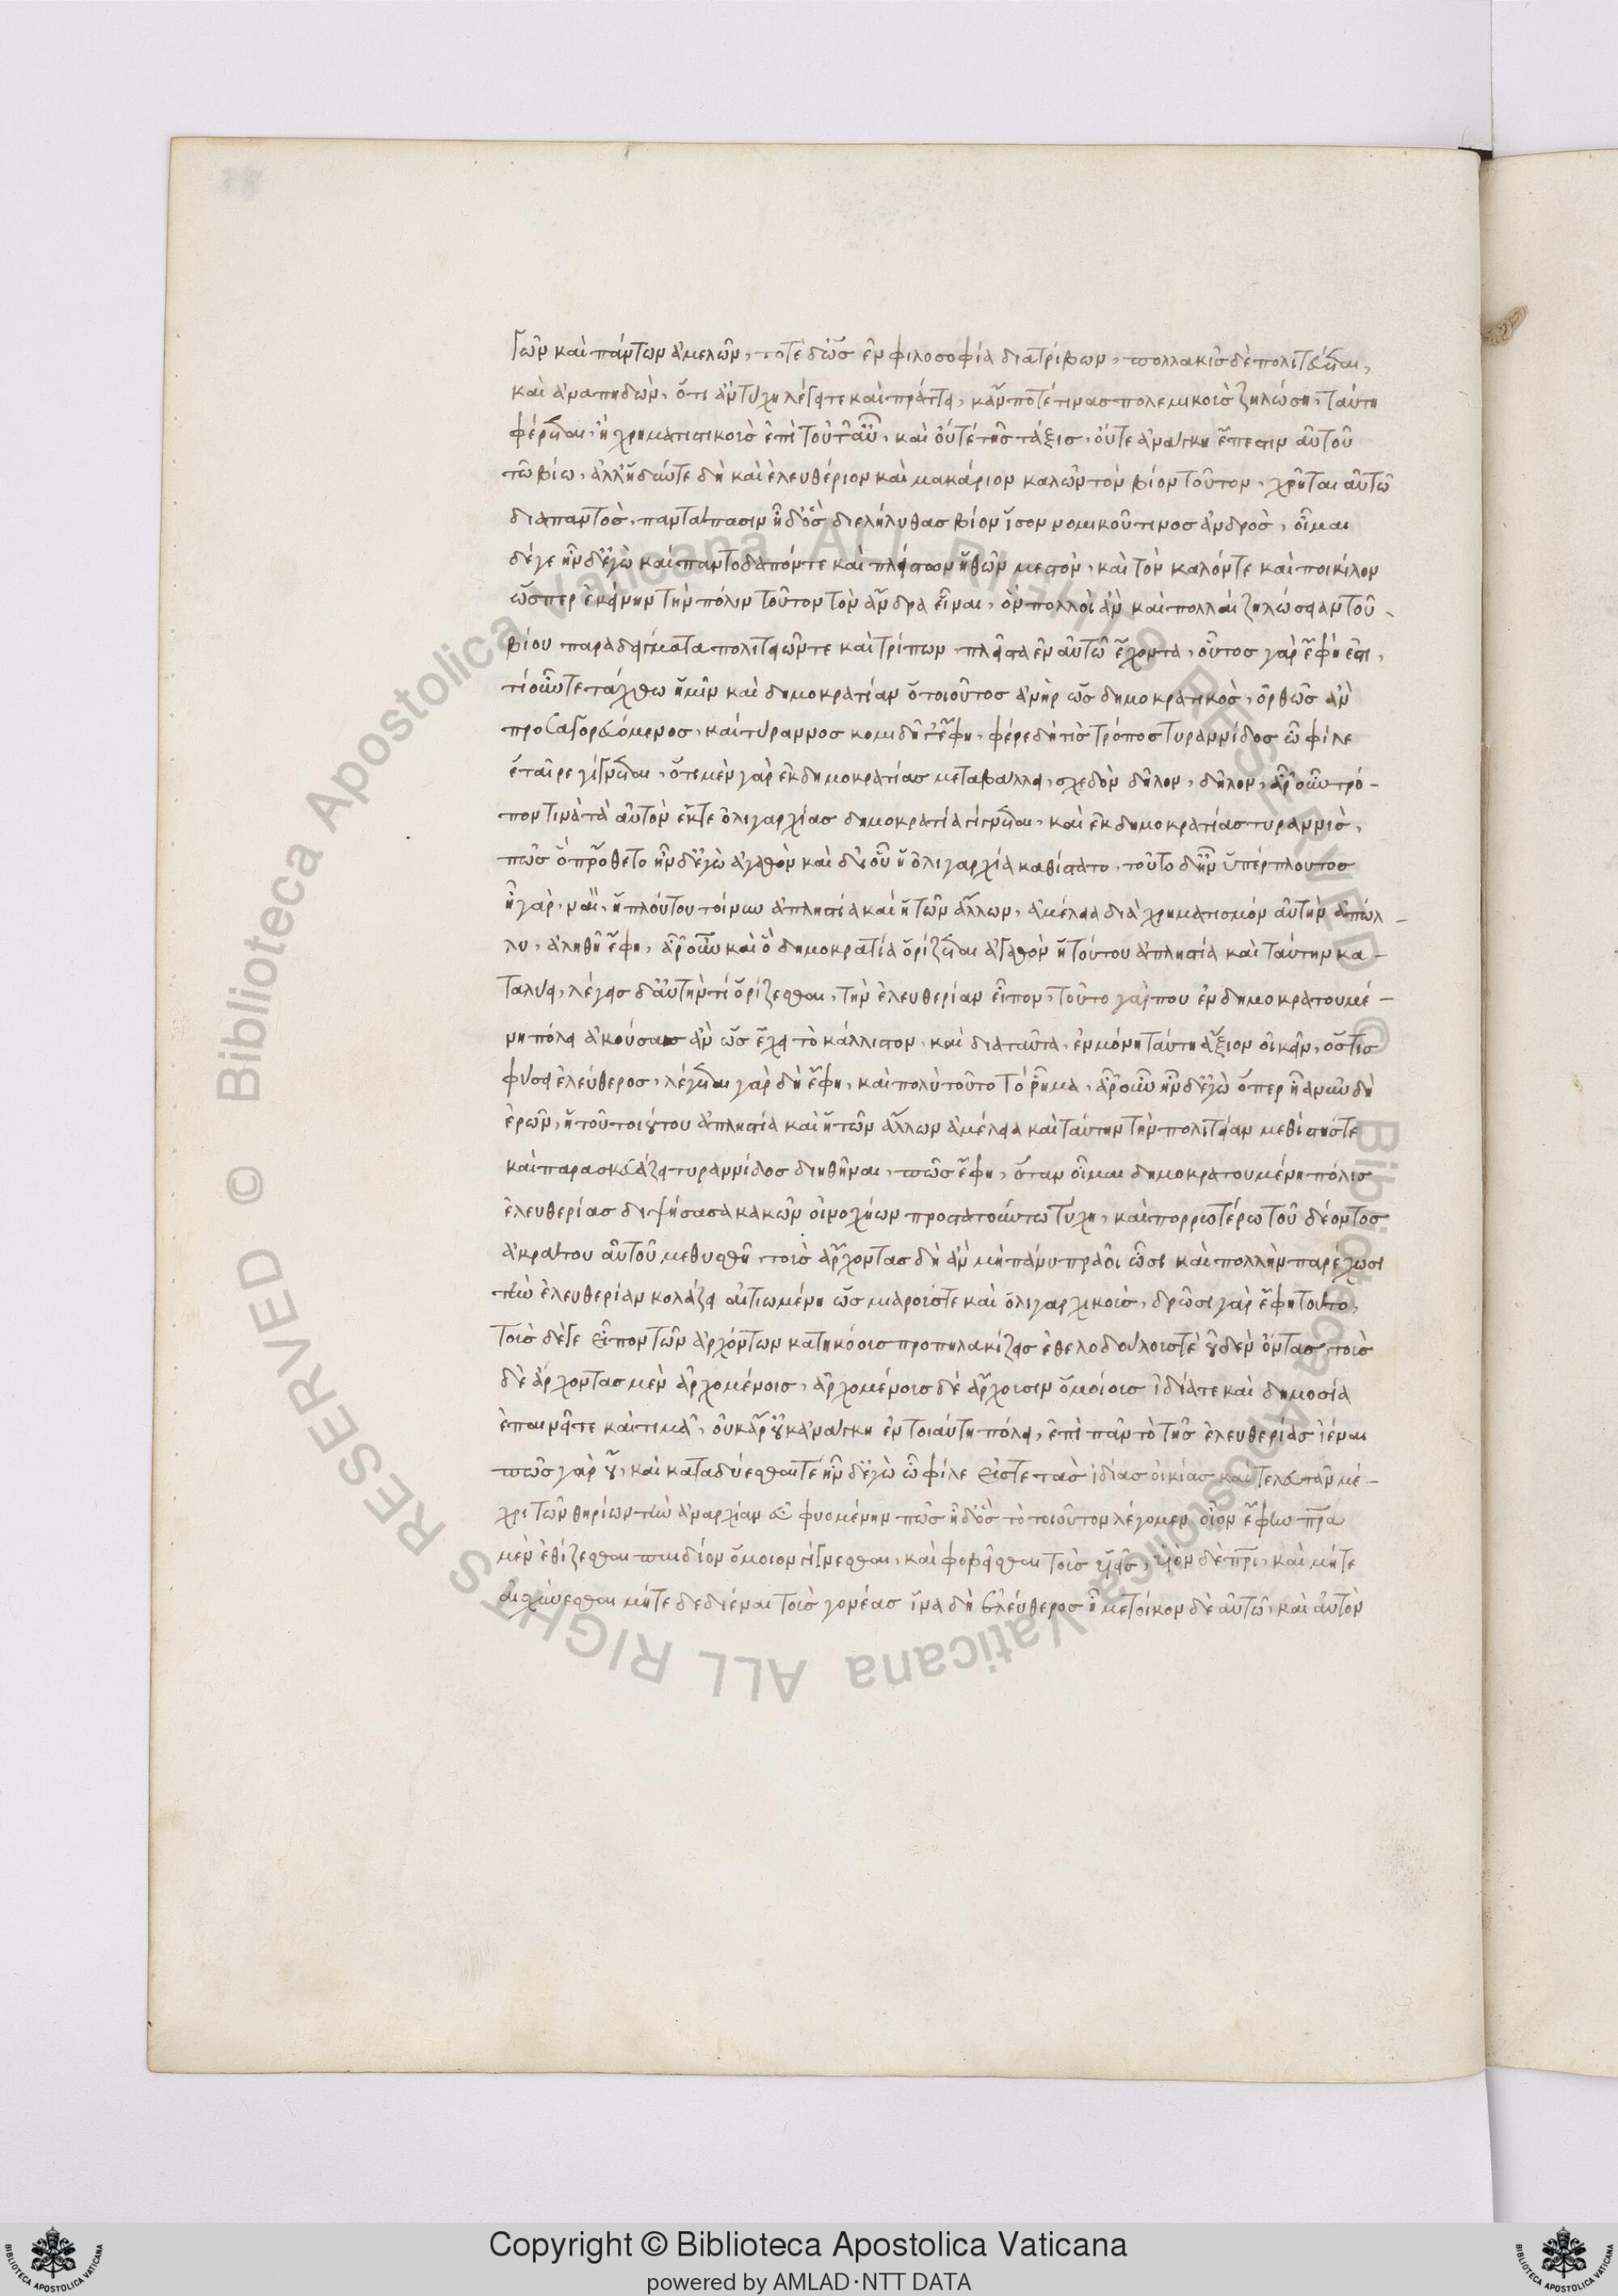 γῶν καὶ πάντων ἀμελῶν, τοτὲ δ' ὡς ἐν φιλοσοφία διατρίβων, πολλακις δὲ πολιτεύεται,
καὶ ἀναπηδῶν, ὅτι ἀν τύχη λέγει τε καὶ πράττει, κἄν ποτέ τινας πολεμικοὺς ζηλώση, ταύτη
φέρεται, ἢ χρηματιστικοὺς ἐπὶ τοῦτ' αὖ, καὶ οὔτέ τῆς τάξις, οὔτε ἀνάγκη ἔπεστιν αὐτοῦ
τῶ βίω, ἀλλ' ἡδύν τε δὴ καὶ ἐλευθέριον καὶ μακάριον καλῶν τὸν βίον τοῦτον, χρῆται αὐτῶ
διαπαντὸς, πανταπασιν ἦ δ' ὃς διελήλυθας βίον ἴσον νομικοῦ τινος ἀνδρὸς, οἶμαι
δέγε ἦν δ' ἐγὼ καὶ παντοδαπόν τε καὶ πλείστων ἠθῶν μεστὸν, καὶ τὸν καλόν τε καὶ ποικίλον
ὥσπερ ἐκείνην τὴν πόλιν τοῦτον τὸν ἄνδρα εἶναι, ὃν πολλοὶ ἀν καὶ πολλαὶ ζηλώσειαν τοῦ
βίου παραδείγματα πολιτειῶν τε καὶ τρόπων πλεῖστα ἐν αὐτῶ ἔχοντα, οὗτος γὰρ ἔφη ἐστι,
τί οὖν τετάχθω ἡμῖν καὶ δημοκρατίαν ὁ τοιοῦτος ἀνὴρ ὡς δημοκρατικὸς, ὀρθῶς ἀν
προσαγορευόμενος, καὶ τύραννος κομιδῆ γ' ἔφη, φέρε δὴ τὶς τρόπος τυραννίδος ὦ φίλε
ἑταῖρε γίγνεται, ὅτι μὲν γὰρ ἐκ δημοκρατίας μεταβάλλει, σχεδὸν δῆλον, δῆλον, ἆρ' οὖν τρό-
πον τινὰ τὰ αὐτὸν ἔκ τε ὀλιγαρχίας δημοκρατία γίγνεται, καὶ ἐκ δημοκρατίας τυραννὶς,
πῶς ὃ πρόθετο ἦν δ' ἐγὼ ἀγαθὸν καὶ δι' οὗ ἡ ὀλιγαρχία καθίστατο, τοῦτο δ' ἦν ὑπέρπλουτος
ἦ γάρ, ναί, ἡ πλούτου τοίνυν ἀπληστία καὶ ἡ τῶν ἄλλων, ἀμέλεια διὰ χρηματισμόν αὐτὴν ἀπώλ-
λυ, ἀληθῆ ἔφη, ἆρ' οὖν καὶ ὃ δημοκρατία ὁρίζεται ἀγαθὸν ἡ τούτου ἀπληστία καὶ ταύτην κα-
ταλύει, λέγεις δ' αὐτὴν τί ὁρίζεσθαι, τὴν ἐλευθερίαν εἶπον, τοῦτο γάρ που ἐν δημοκρατουμέ-
νη πόλει ἀκούσαις ἀν ὡς ἔχει τὸ κάλλιστον, καὶ διαταῦτα, ἐν μόνη ταύτη ἄξιον οἰκεῖν, ὅστις
φύσει ἐλεύθερος, λέγεται γὰρ δὴ ἔφη, καὶ πολὺ τοῦτο τὸ ῥῆμα, ἆρ' οὖν ἦν δ' ἐγὼ ὅπερ ἦα νῦν δὴ
ἐρῶν, ἡ τοῦ τοιούτου ἀπληστία καὶ ἡ τῶν ἄλλων ἀμέλεια καὶ ταύτην τὴν πολιτείαν μεθίστησί τε
καὶ παρασκευάζει τυραννίδος δεηθῆναι, πῶς ἔφη, ὅταν οἶμαι δημοκρατουμένη πόλις
ἐλευθερίας διψήσασα κακῶν οἰνοχόων προστατούντων τύχη, καὶ πορρωτέρω τοῦ δέοντος
ἀκράτου αὐτοῦ μεθυσθῆ, τοὺς ἄρχοντας δὴ ἀν μὴ πάνυ πρᾶοι ὦσι καὶ πολλὴν παρέχωσι
τὴν ἐλευθερίαν κολάζει αἰτιωμένη ὡς μιαρούς τε καὶ ὀλιγαρχικούς, δρῶσι γὰρ ἔφη τοῦτο,
τοὺς δέ γε εἶπον τῶν ἀρχόντων κατηκόους προπηλακίζεις ἐθελοδούλους τέ οὐδὲν ὄντας, τοὺς
δὲ ἄρχοντας μὲν ἀρχομένοις, ἀρχομένοις δὲ ἄρχουσιν ὁμοίους ἰδία τε καὶ δημοσία
ἐπαινεῖ τε καὶ τιμᾶ, οὐκ ἆρ' οὐκ ἀνάγκη ἐν τοιαύτη πόλει, ἐπὶ πᾶν τὸ τῆς ἐλευθερίας ἰέναι
πῶς γὰρ οὔ, καὶ καταδύεσθαί τέ ἦν δ' ἐγὼ ὦ φίλε εἴς τε τὰς ἰδίας οἰκίας καὶ τελευτᾶν μέ-
χρι τῶν θηρίων τὴν ἀναρχίαν ἐμφυομένην πῶς ἦ δ' ὃς τὸ τοιοῦτον λέγομεν, οἷον ἔφην πρα
μὲν ἐθίζεσθαι παιδίον ὅμοιον γίγνεσθαι, καὶ φοβεῖσθαι τοὺς υἱεῖς, υἱὸν δὲ πρι, καὶ μήτε
αἰσχύνεσθαι μήτε δεδιέναι τοὺς γονέας ἵνα δὴ ἐλεύθερος ἦ μετοίκον δὲ αὐτῶ, καὶ ἀυτὸν
Copyright © Biblioteca Apostolica Vaticana
powered by AMLAD·NTT DATA